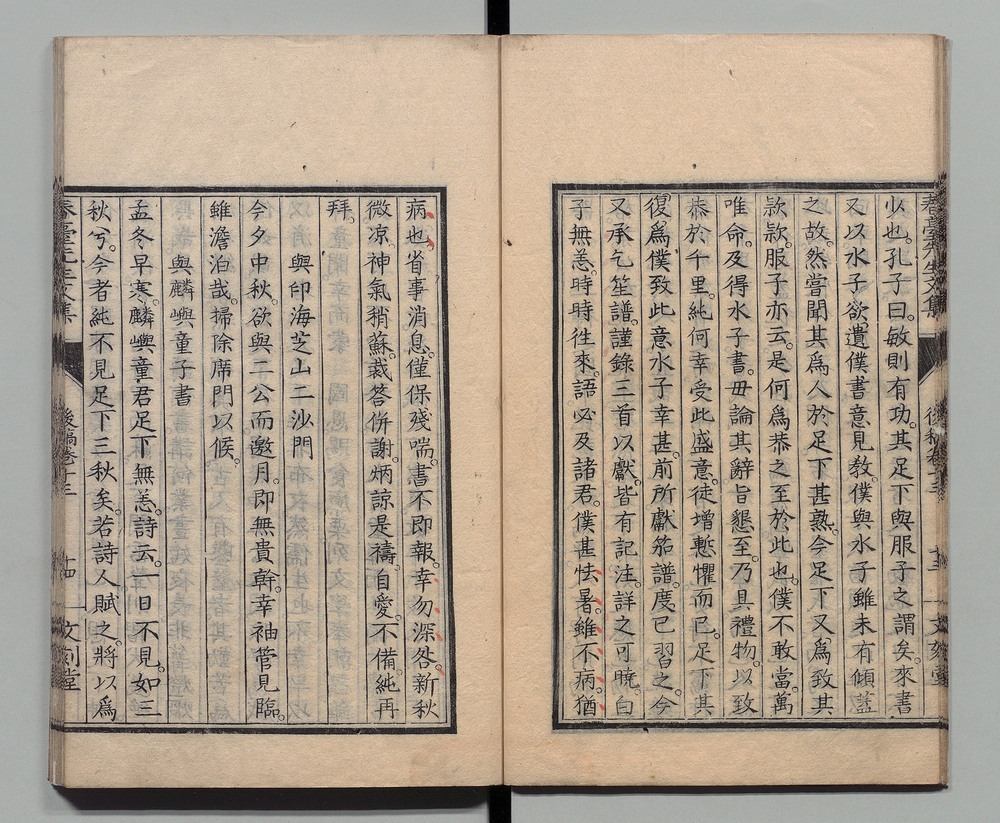 少也。孔子曰。敏則有功。其足下與服子之謂矣。來書
又以水子欲遺僕書意見教。僕與水子雖未有傾蓋
之故。然嘗聞其爲人於足下甚熟。今足下又爲致其
款款。服子亦云。是何爲恭之至於此也。僕不敢當。萬
唯命。及得水子書。毋論其辭旨懇至。乃具禮物。以致
恭於千里。純何幸受此盛意。徒增慙懼而已。足下其
復爲僕致此意水子幸甚。前所獻笛譜。度已習之。今
又承乞笙譜。謹錄三首以獻。皆有記注。詳之可曉。白
子無恙。時時徃來。語必及諸君。僕甚怯暑。雖不病。猶
病也。省事消息。僅保殘喘。書不即報。幸勿深咎。新秋
微凉。神氣稍蘇。裁答併謝。炳諒是禱。自愛。不備。純再
拜。
與印海芝山二沙門
今夕中秋。欲與二公而邀月。即無貴幹。幸袖管見臨。
雖澹泊哉。掃除席門以候。
與麟嶼童子書
孟冬早寒。麟嶼童君足下無恙。詩云。一日不見。如三
秋兮。今者純不見足下三秋矣。若詩人賦之。將以爲
春臺先生文集
後稿卷十三
十四
文刻堂